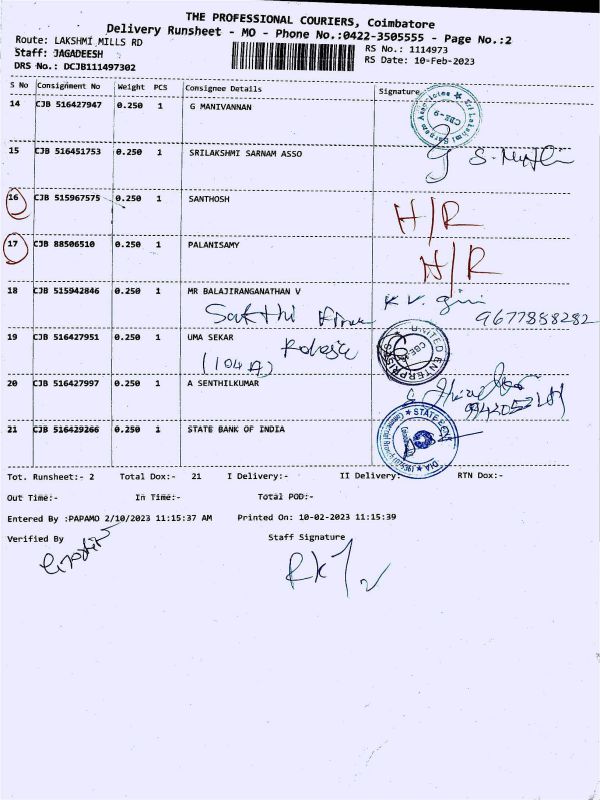 THE PROFESSIONAL COURIERS, Coimbatore
Delivery Runsheet - MO - Phone No.:0422-3505555 - Page No.:2
Route: LAKSHMI MILLS RD
Staff: JAGADEESH
DRS No.: DCJB111497302
RS No.: 1114973
RS Date: 10-Feb-2023
S No Consignment No Weight PCS Consignee Details Signature
14 CJB 516427947 0.250 1 G MANIVANNAN
15 CJB 516451753 0.250 1 SRILAKSHMI SARNAM ASSO
16 CJB 515967575 0.250 1 SANTHOSH H/R
17 CJB 88506510 0.250 1 PALANISAMY H/R
18 CJB 515942846 0.250 1 MR BALAJIRANGANATHAN V K V. giri
Sakthi 9677888282
19 CJB 516427951 0.250 1 UMA SEKAR UNITED ENTERPRISES
(104 A)
20 CJB 516427997 0.250 1 A SENTHILKUMAR
21 CJB 516429266 0.250 1 STATE BANK OF INDIA
Tot. Runsheet:- 2 Total Dox:- 21 I Delivery:- II Delivery:- RTN Dox:-
Out Time:- In Time:- Total POD:-
Entered By :PAPAMO 2/10/2023 11:15:37 AM Printed On: 10-02-2023 11:15:39
Verified By Staff Signature